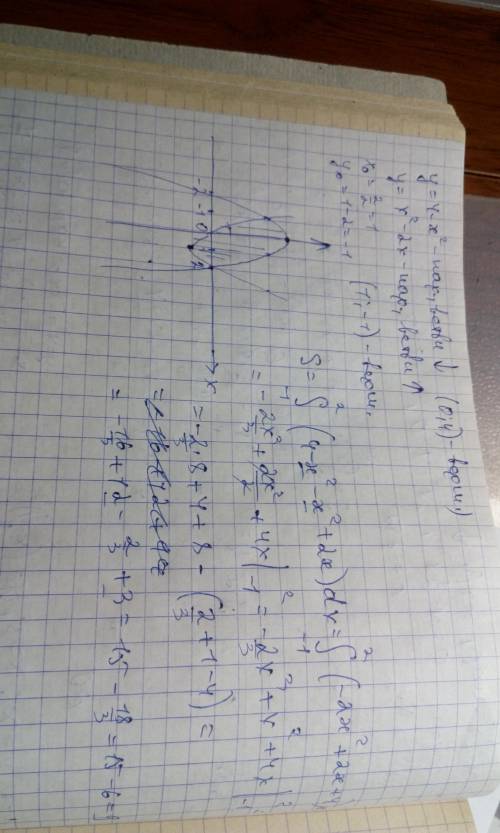 y=4-x²-пар, ветви ↓ (0;4)-верш,
y=x²-2x-пар, ветви ↑
x₀=2/2=1
y₀=1-2=-1 (1;-1)-верш,
-2 -1 0 2 x
S=∫₋₁² (4-x²-x²+2x)dx=∫₋₁² (-2x²+2x+4
=-2x³/3+2x²/2+4x|₋₁²=-2/3x³+x²+4x|₋₁²
=-2/3·8+4+8-(2/3+1-4)=
=-16/3+12-2/3+3=15-18/3=15-6=9